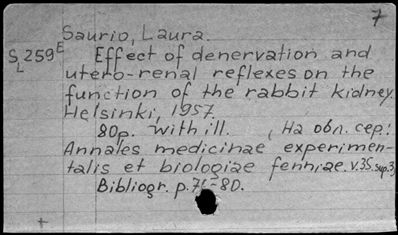 7
Saurio, Laura.
SL259E Effect of denervation and
utero-renal reflexes on the
function of the rabbit kidney.
Helsinki, 1957.
80p. with ill. , На обл. сер.:
Annales medicinae experimen-
talis et biologiae fenniae. v.35. sup.3,
Bibliogr. p.76-80.
+